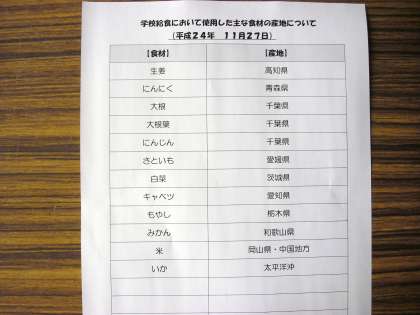 学校給食において使用した主な食材の産地について
(平成24年 11月27日)
【食材】 【産地】
生姜 高知県
にんにく 青森県
大根 千葉県
大根葉 千葉県
にんじん 千葉県
さといも 愛媛県
白菜 茨城県
キャベツ 愛知県
もやし 栃木県
みかん 和歌山県
米 岡山県・中国地方
いか 太平洋沖